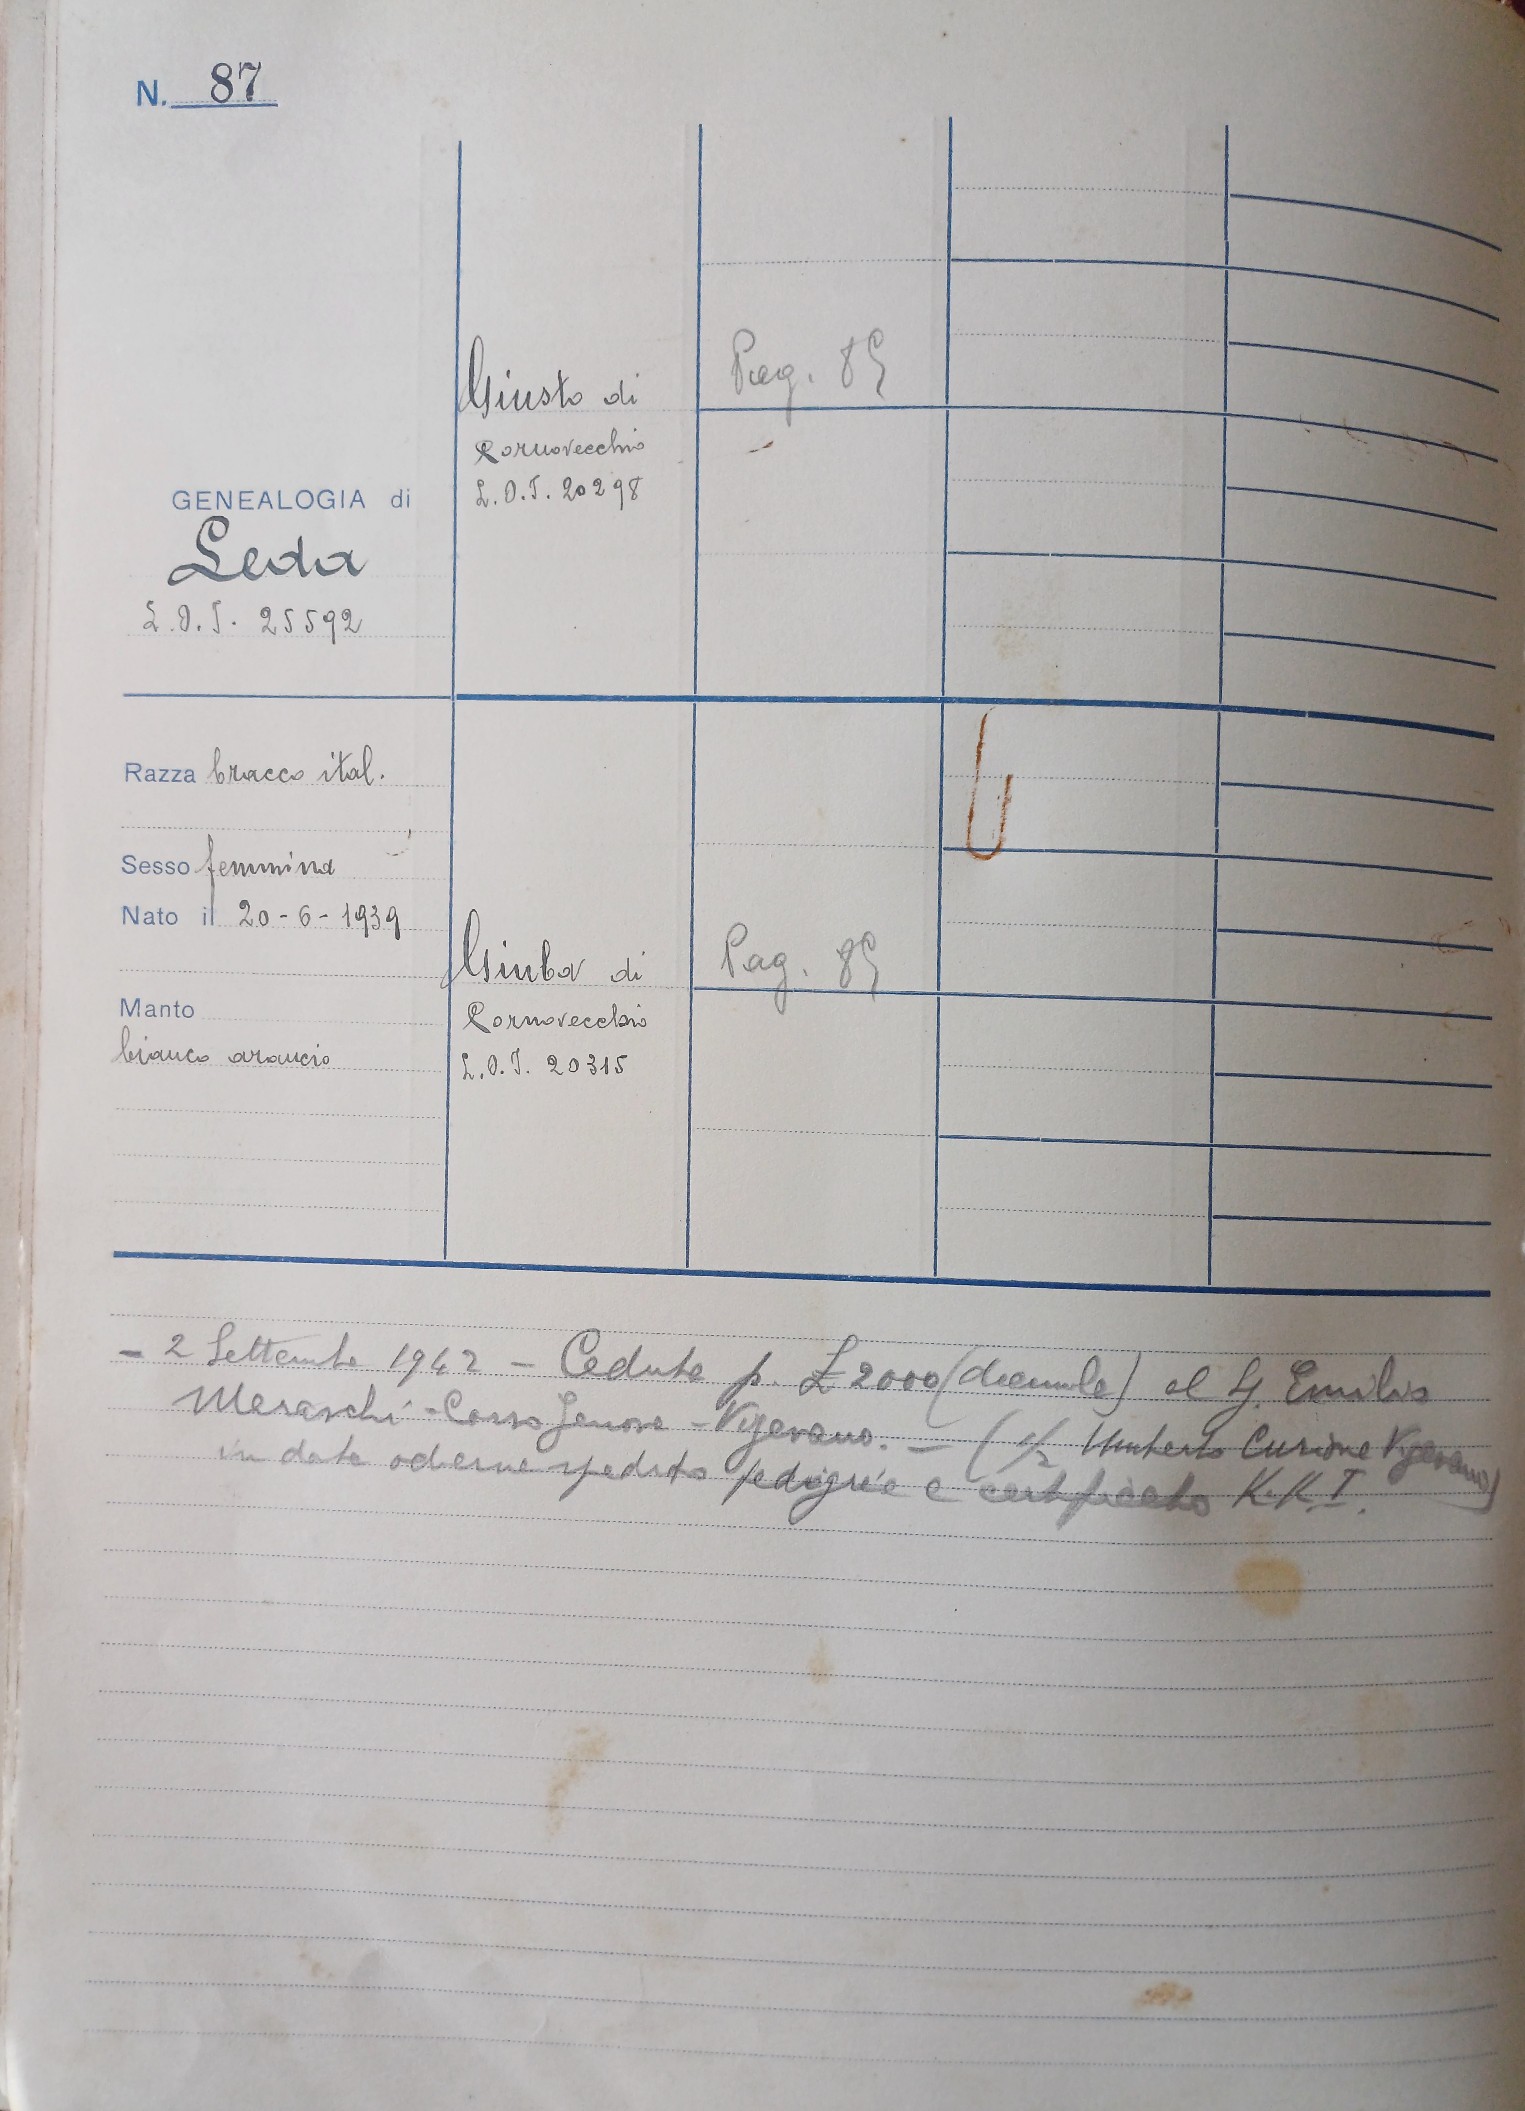 N. 87
GENEALOGIA di
Leda
L.O.I. 25592
Razza bracco ital.
Sesso femmina
Nato il 20-6-1939
Manto
bianco arancio
Giusto di
Cornovecchio
L.O.I. 20298
Pag. 85
Giuba di
Cornovecchio
L.O.I. 20315
Pag. 85
- 2 Settembre 1942 - Ceduta p. £ 2000 (duemila) al Sig. Emilio
Meraschi - Corso Genova - Vigevano. - ( Umberto Curione Vigevano)
in data odierna spedito pedigrée e certificato K.K.I.